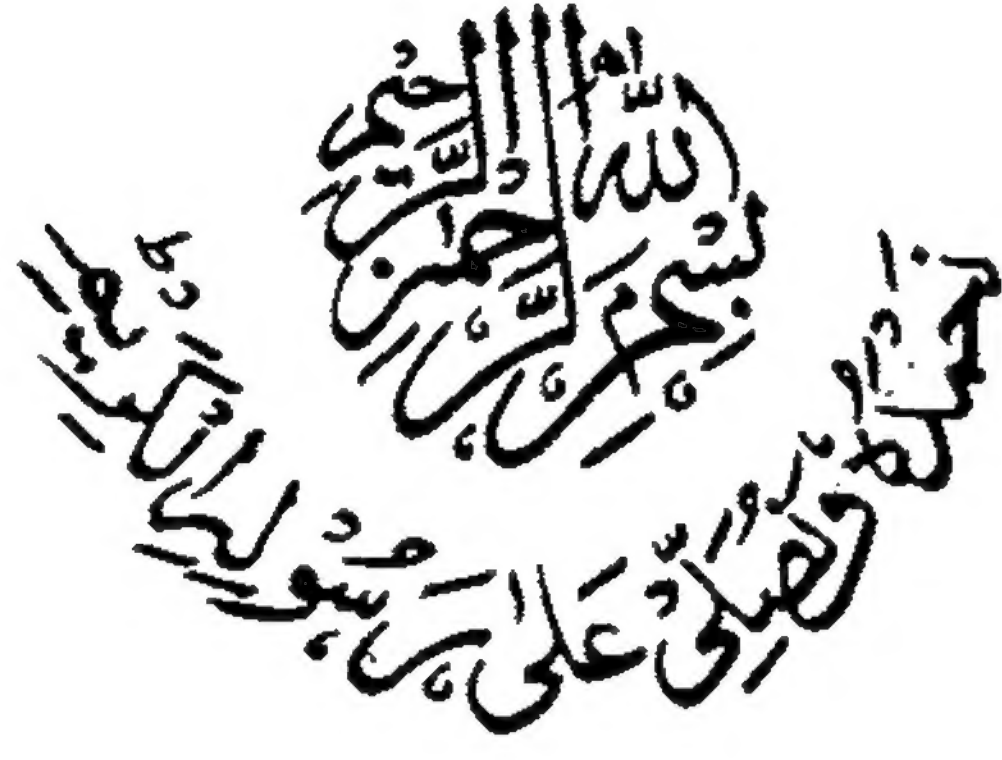 بِسْمِ اللّٰهِ الرَّحْمٰنِ الرَّحِيْمِ
نَحْمَدُهٗ وَنُصَلِّىْ عَلٰى رَسُوْلِهِ الْكَرِيْمِ ط